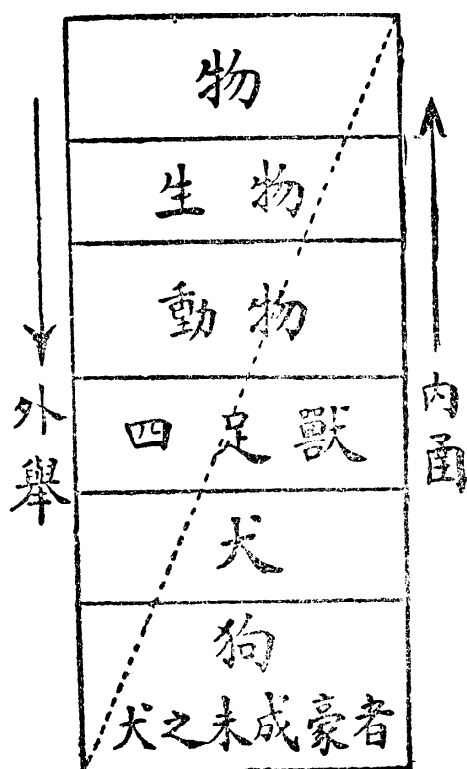 物
生物
動物
四足獸
犬
狗
犬之未成豪者
外舉
內函